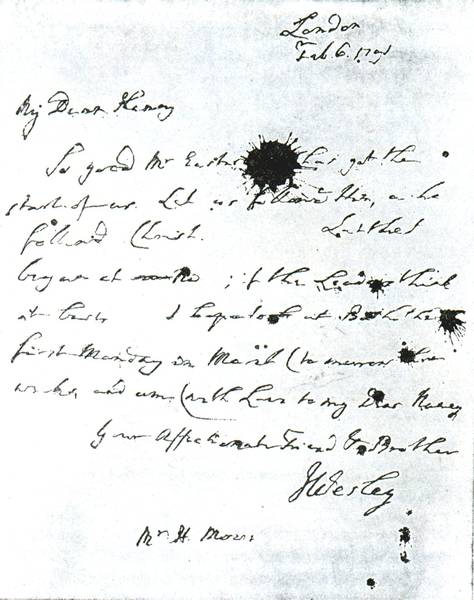 London
Feb 6. 1791
My Dear Henry
So good Mr Easter has got the
start of us. Let us follow Him, as he
followd Christ. Let the
at ; if the Leaders think
it best I hope to at Bath the
first Monday in March (to morrow three
weeks, and am (with Love to my Dear Nancy
Your Affectionate Friend & Brother
JWesley
Mr H. Moore